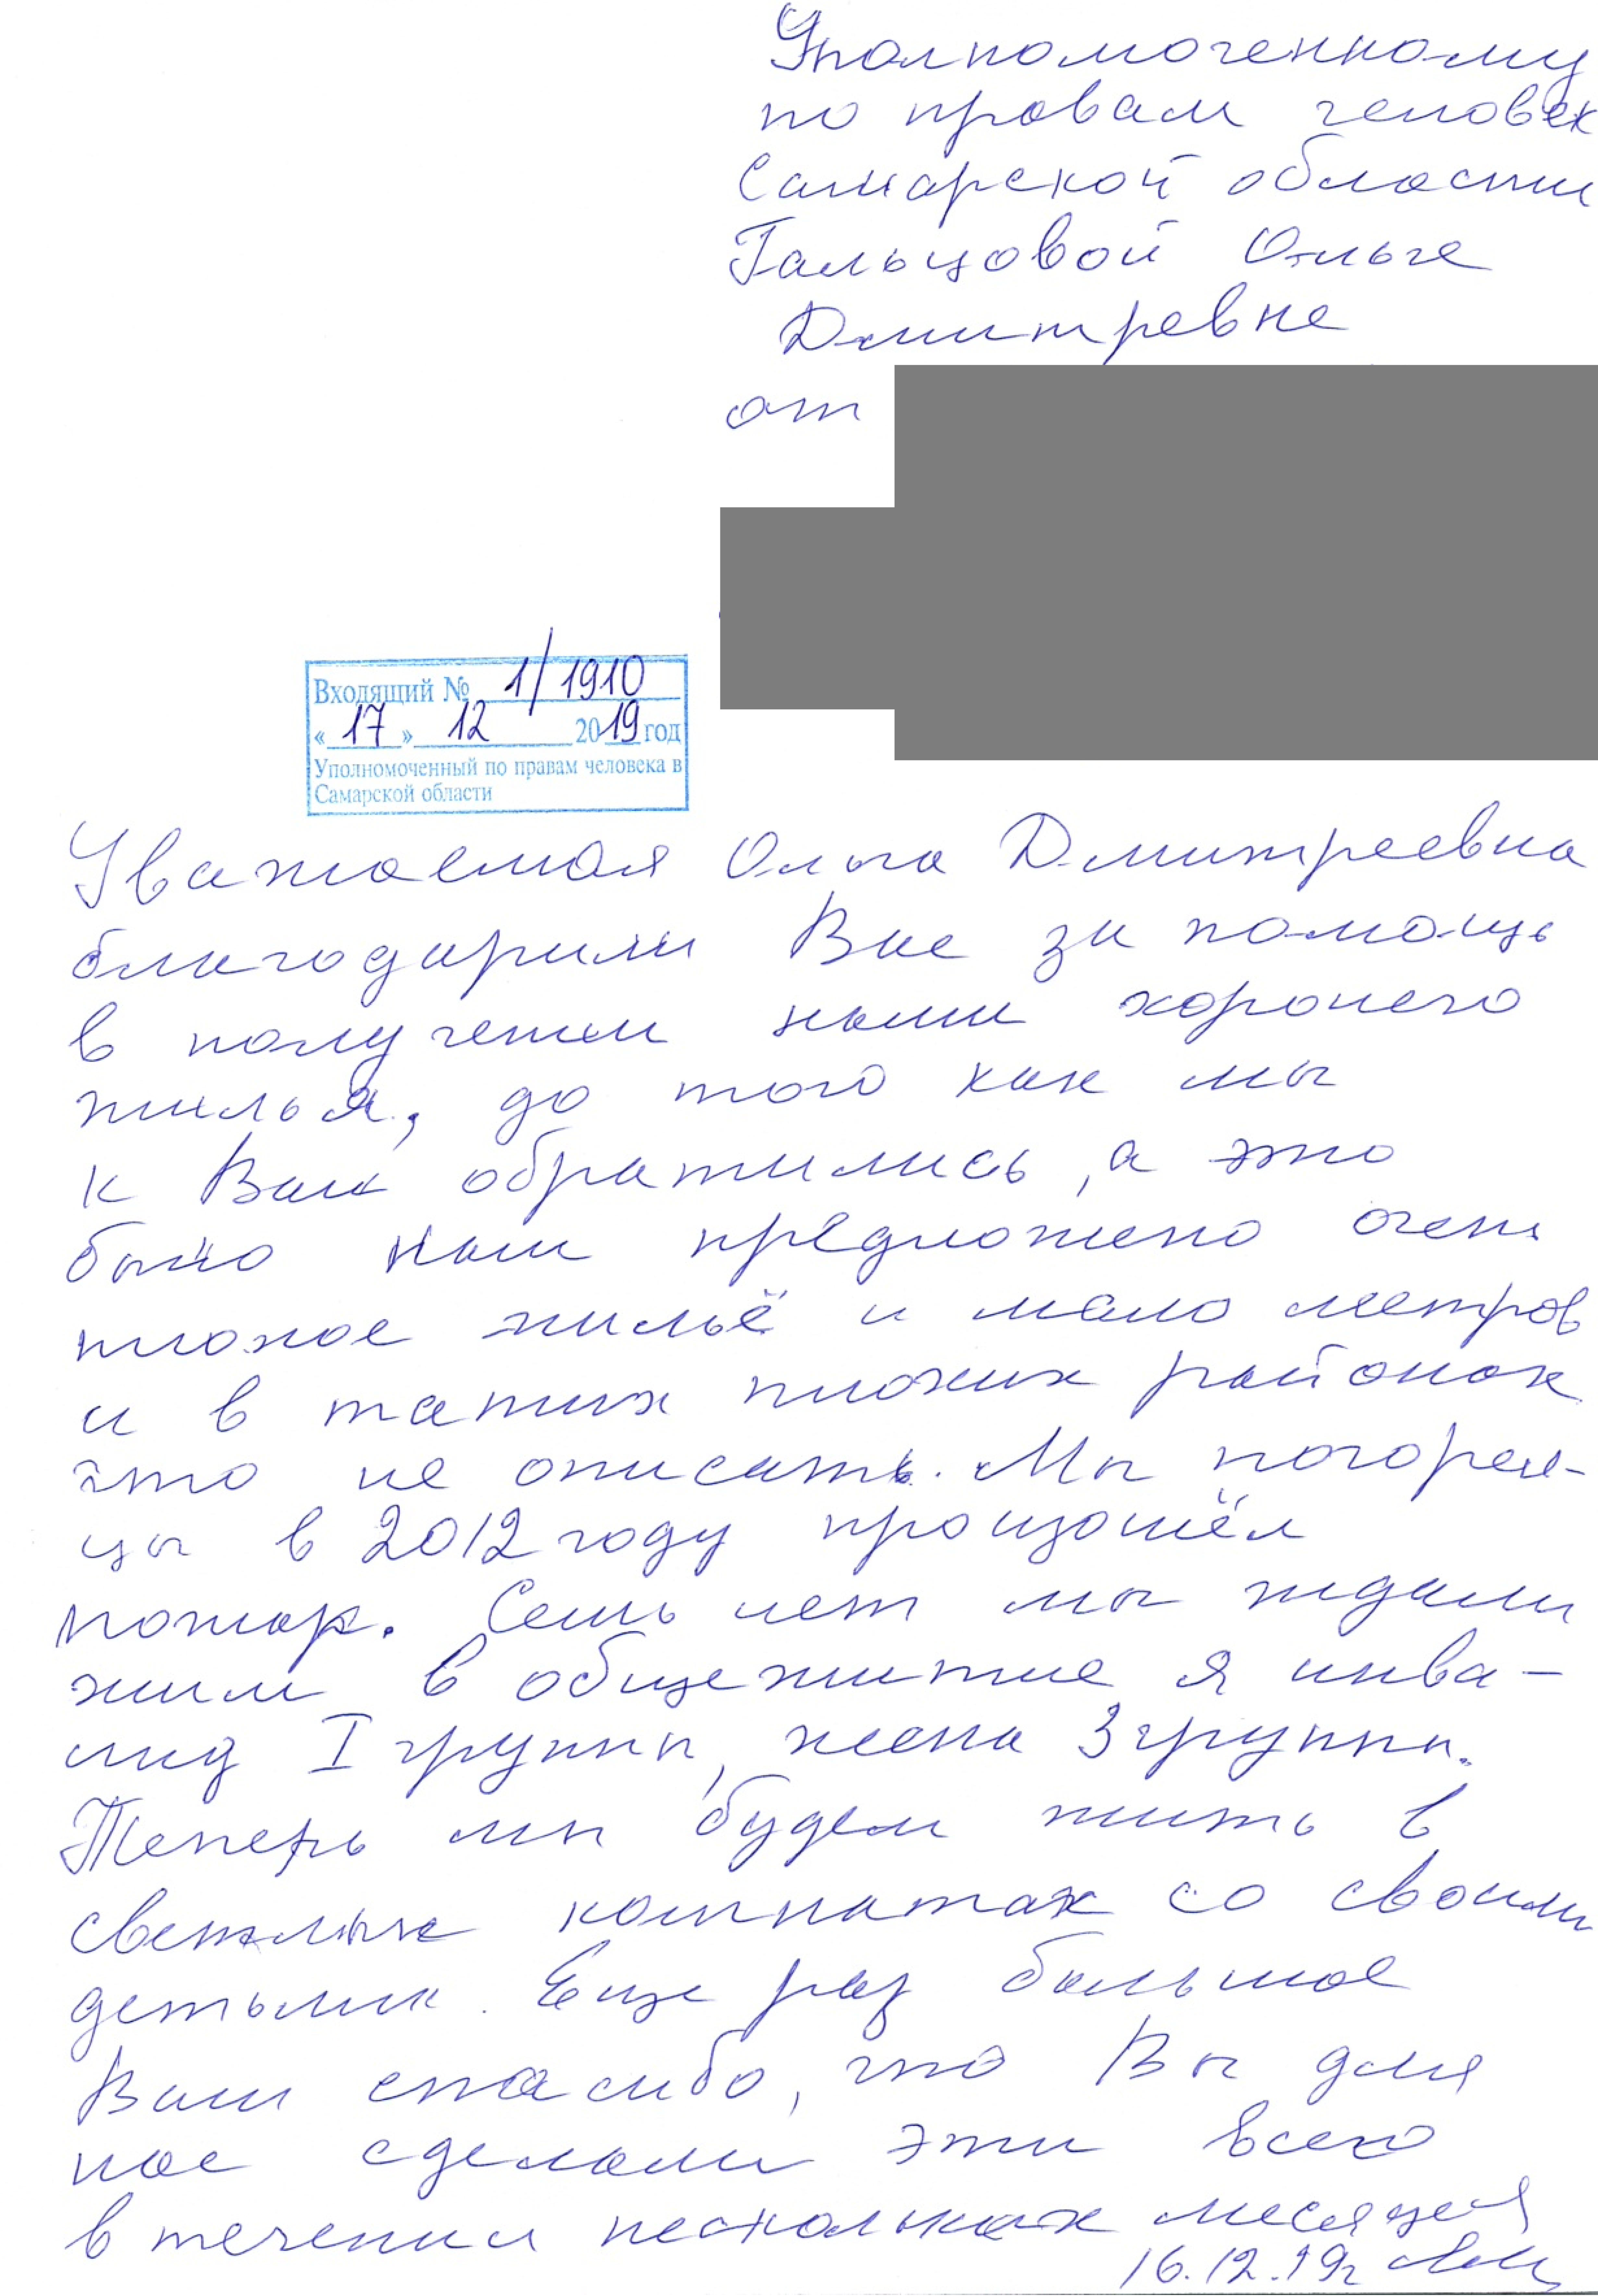 Уполномоченному
по правам человек
Самарской области
Гальцовой Ольге
Дмитревне
от
Входящий № 1/1910
« 17 » 12 2019 год
Уполномоченный по правам человека в
Самарской области
Уважаемая Ольга Дмитреевна
благодарим Вас за помощь
в получении нами хорошего
жилья, до того как мы
к Вам обратились, а это
было нам предложено очень
плохое жильё и мало метров
и в таких плохих районах
что не описать. Мы погорел-
цы в 2012 году произошёл
пожар. Семь лет мы ждали
жили в общежитие я инва-
лид I группы, жена 3 группы.
Теперь мы будем жить в
светлых комнатах со своими
детьми. Еще раз большое
Вам спасибо, что Вы для
нас сделали эти всего
в течении нескольких месяцев
16.12.19г